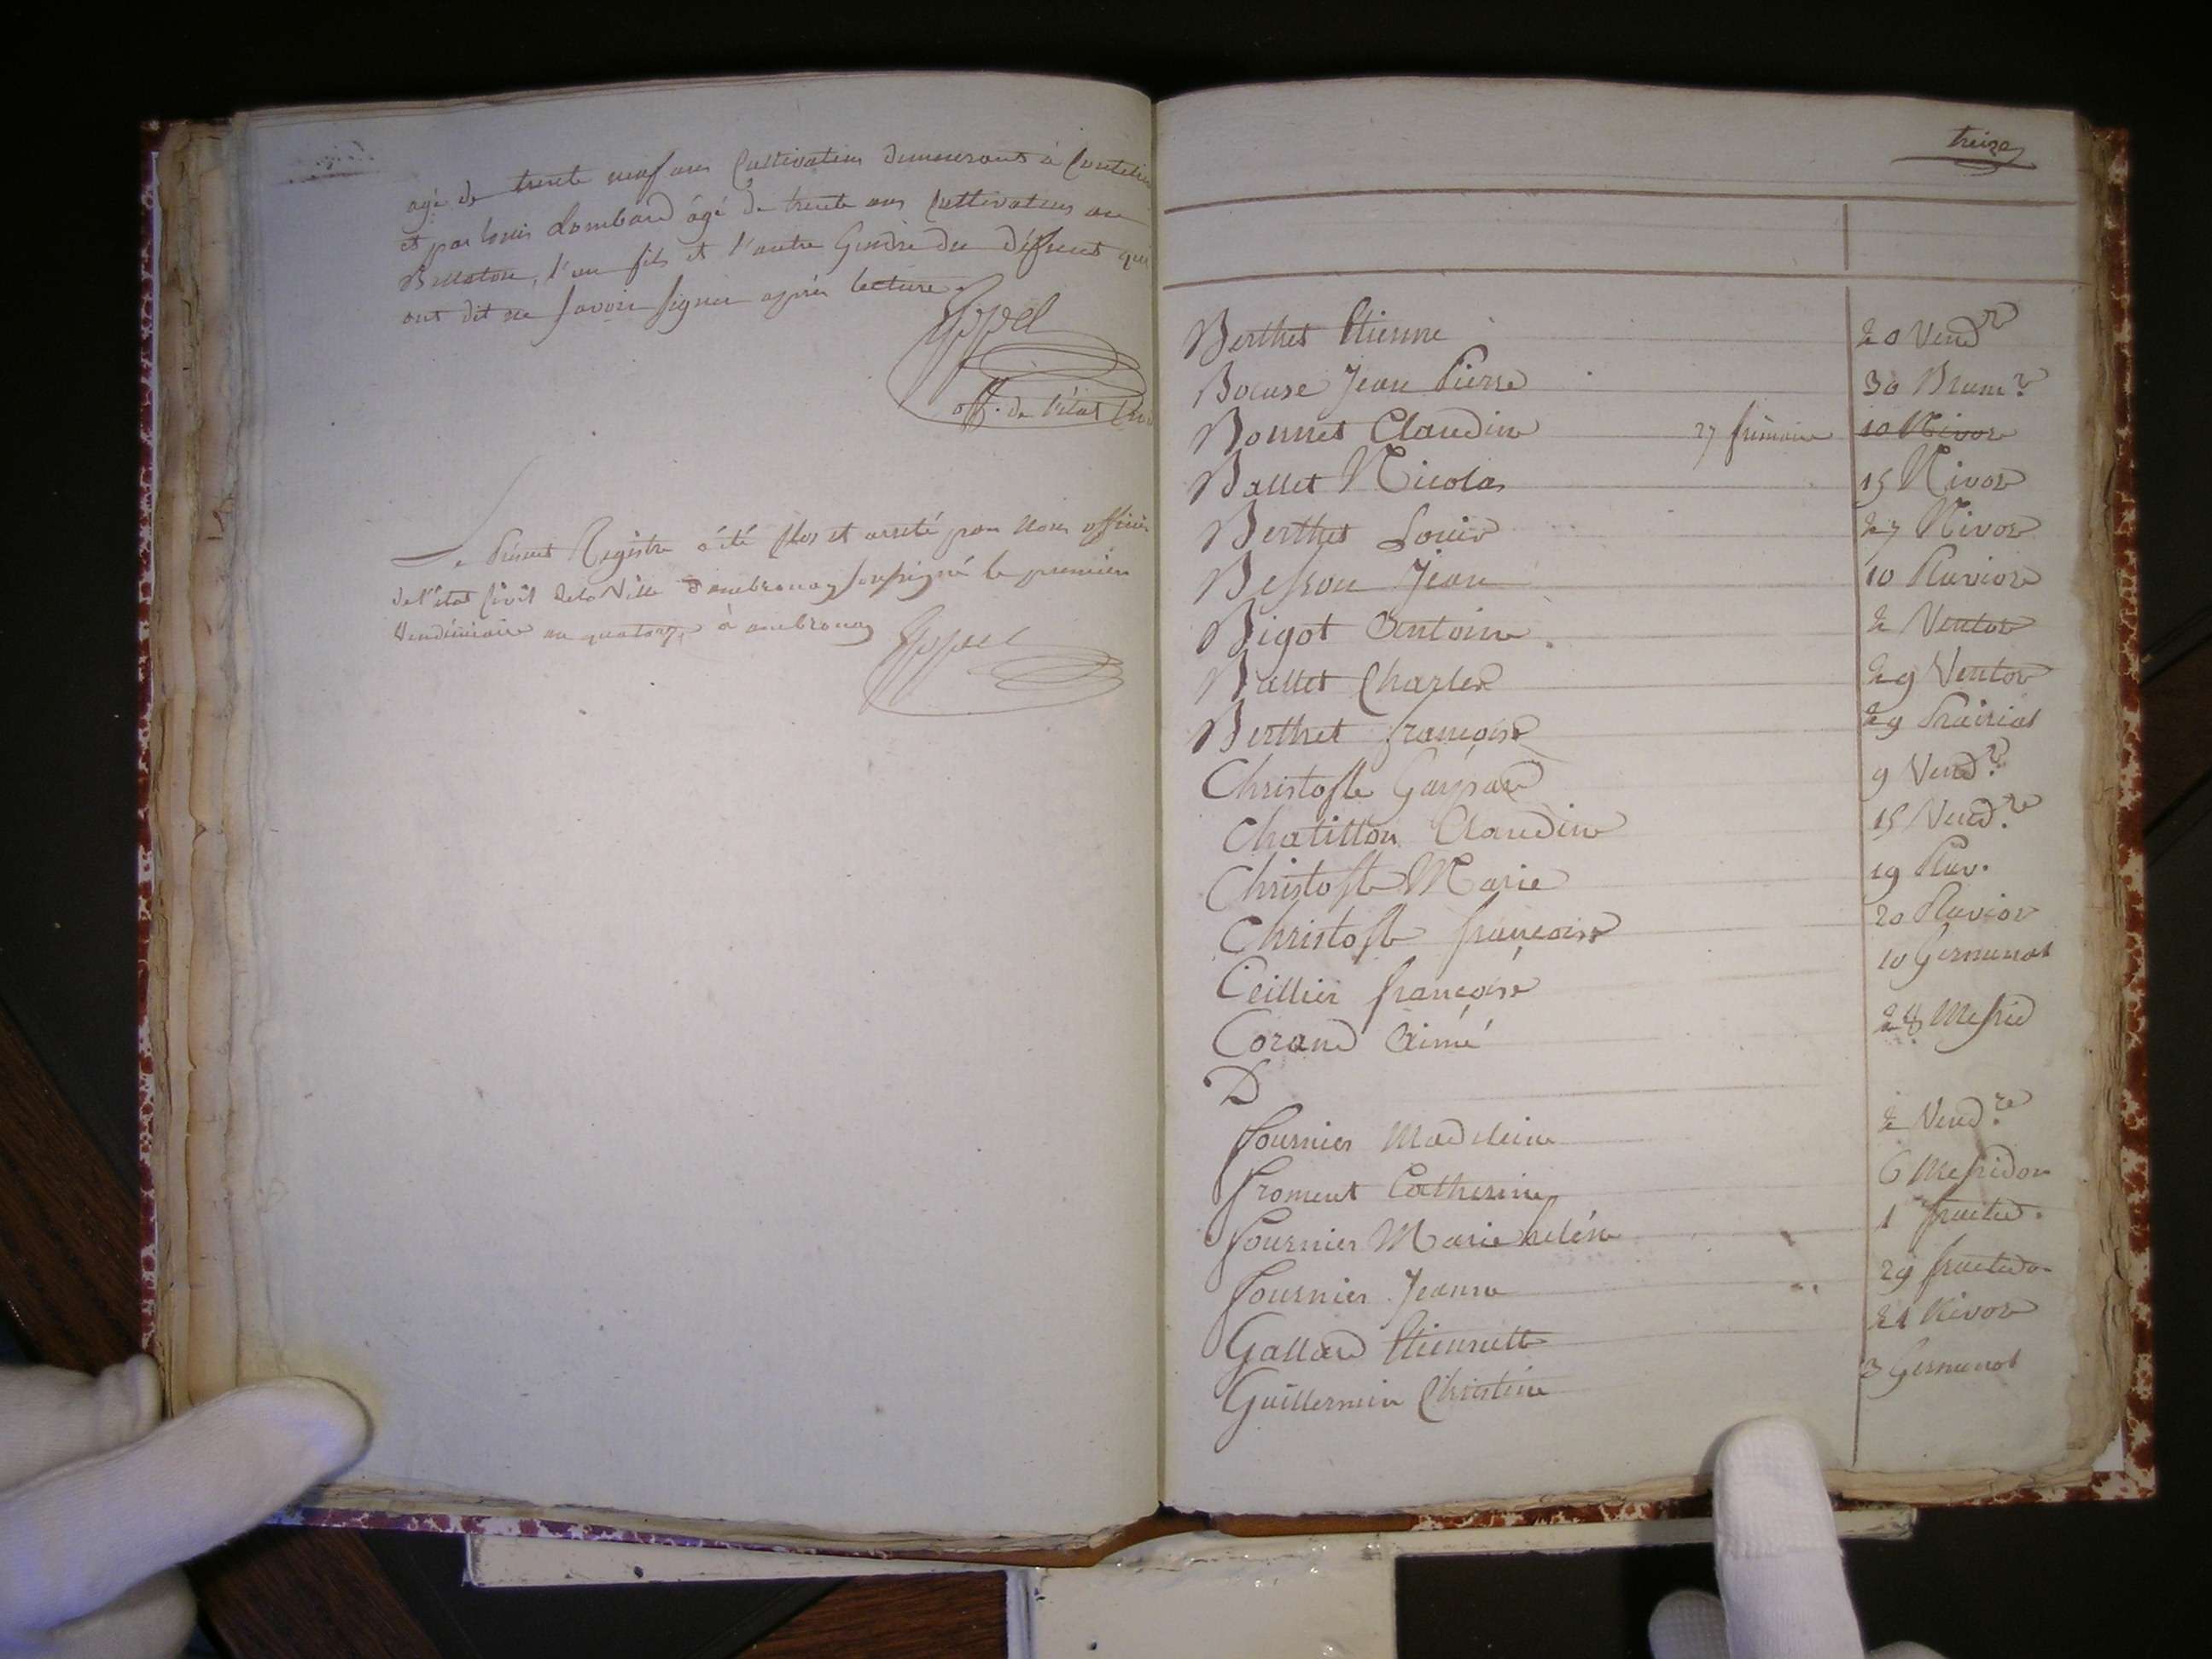 agé de trente neuf ans Cultivateur demeurant à
et par louis Lombard âgé de trente ans Cultivateur au
l'un fils et l'autre Gendre du défunt qui
ont dit ne savoir signer après lecture.
off. de l'état Civil
Le Présent Registre a été Clos et arreté par Nous officier
de l'état Civil de la Ville d'ambronay soussigné le premier
Vendémiaire an quatorze à ambronay
treize
Berthet Etienne 20 Vend.re
Bocuse Jean Pierre 30 Brum.re
Bonnet Claudine 27 frimaire 10 Nivose
Ballet Nicolas 15 Nivose
Berthet Louise 27 Nivose
Besson Jean 10 Pluviose
Bigot Antoine 2 Ventose
Ballet Charles 29 Ventose
Berthet françoise 29 Prairial
Christofle Gaspard 9 Vend.re
Chatillon Claudine 15 Vend.re
Christofle Marie 19 Pluv.
Christofle françoise 20 Pluviose
Ceillier françoise 10 Germinal
Corand Aimé 28 Messid
D
fournier Madeleine 2 Vend.re
froment Catherine 6 Messidor
fournier Marie helène 1 fructid.
fournier Jeanne 29 fructidor
Galland Etiennette 21 Nivose
Guillermin Christine 3 Germinal